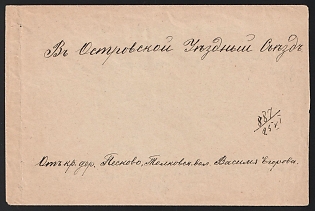 Въ Островской Уѣздный Съѣздъ
887
25 VI
Отъ кр. дер. Песково, Толковск. вол. Василія Егорова.